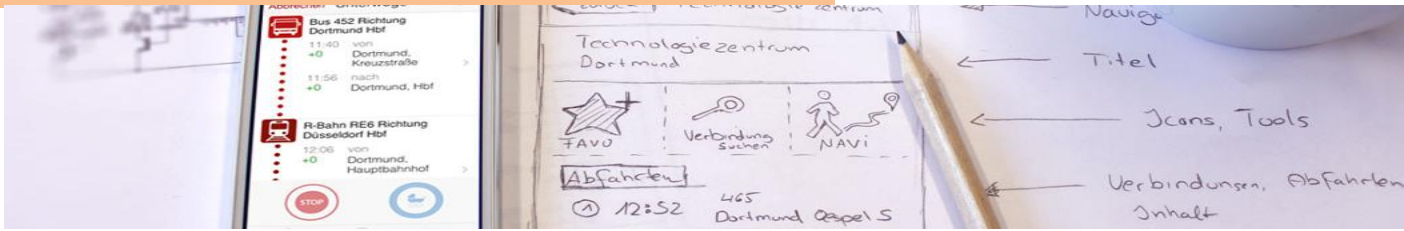 Abbrechen Unterwegs
Bus 452 Richtung
Dortmund Hbf
11:40 von
+0 Dortmund,
Kreuzstraße
11:56 nach
+0 Dortmund, Hbf
R-Bahn RE6 Richtung
Düsseldorf Hbf
12:06 von
+0 Dortmund,
Hauptbahnhof
STOP
Technologiezentrum
Technologiezentrum
Dortmund
FAVO
Verbindung
suchen
NAVi
Abfahrten
1 12:52 465
Dortmund Oespel S
Navig
Titel
Icons, Tools
Verbindungen, Abfahrten
Inhalt